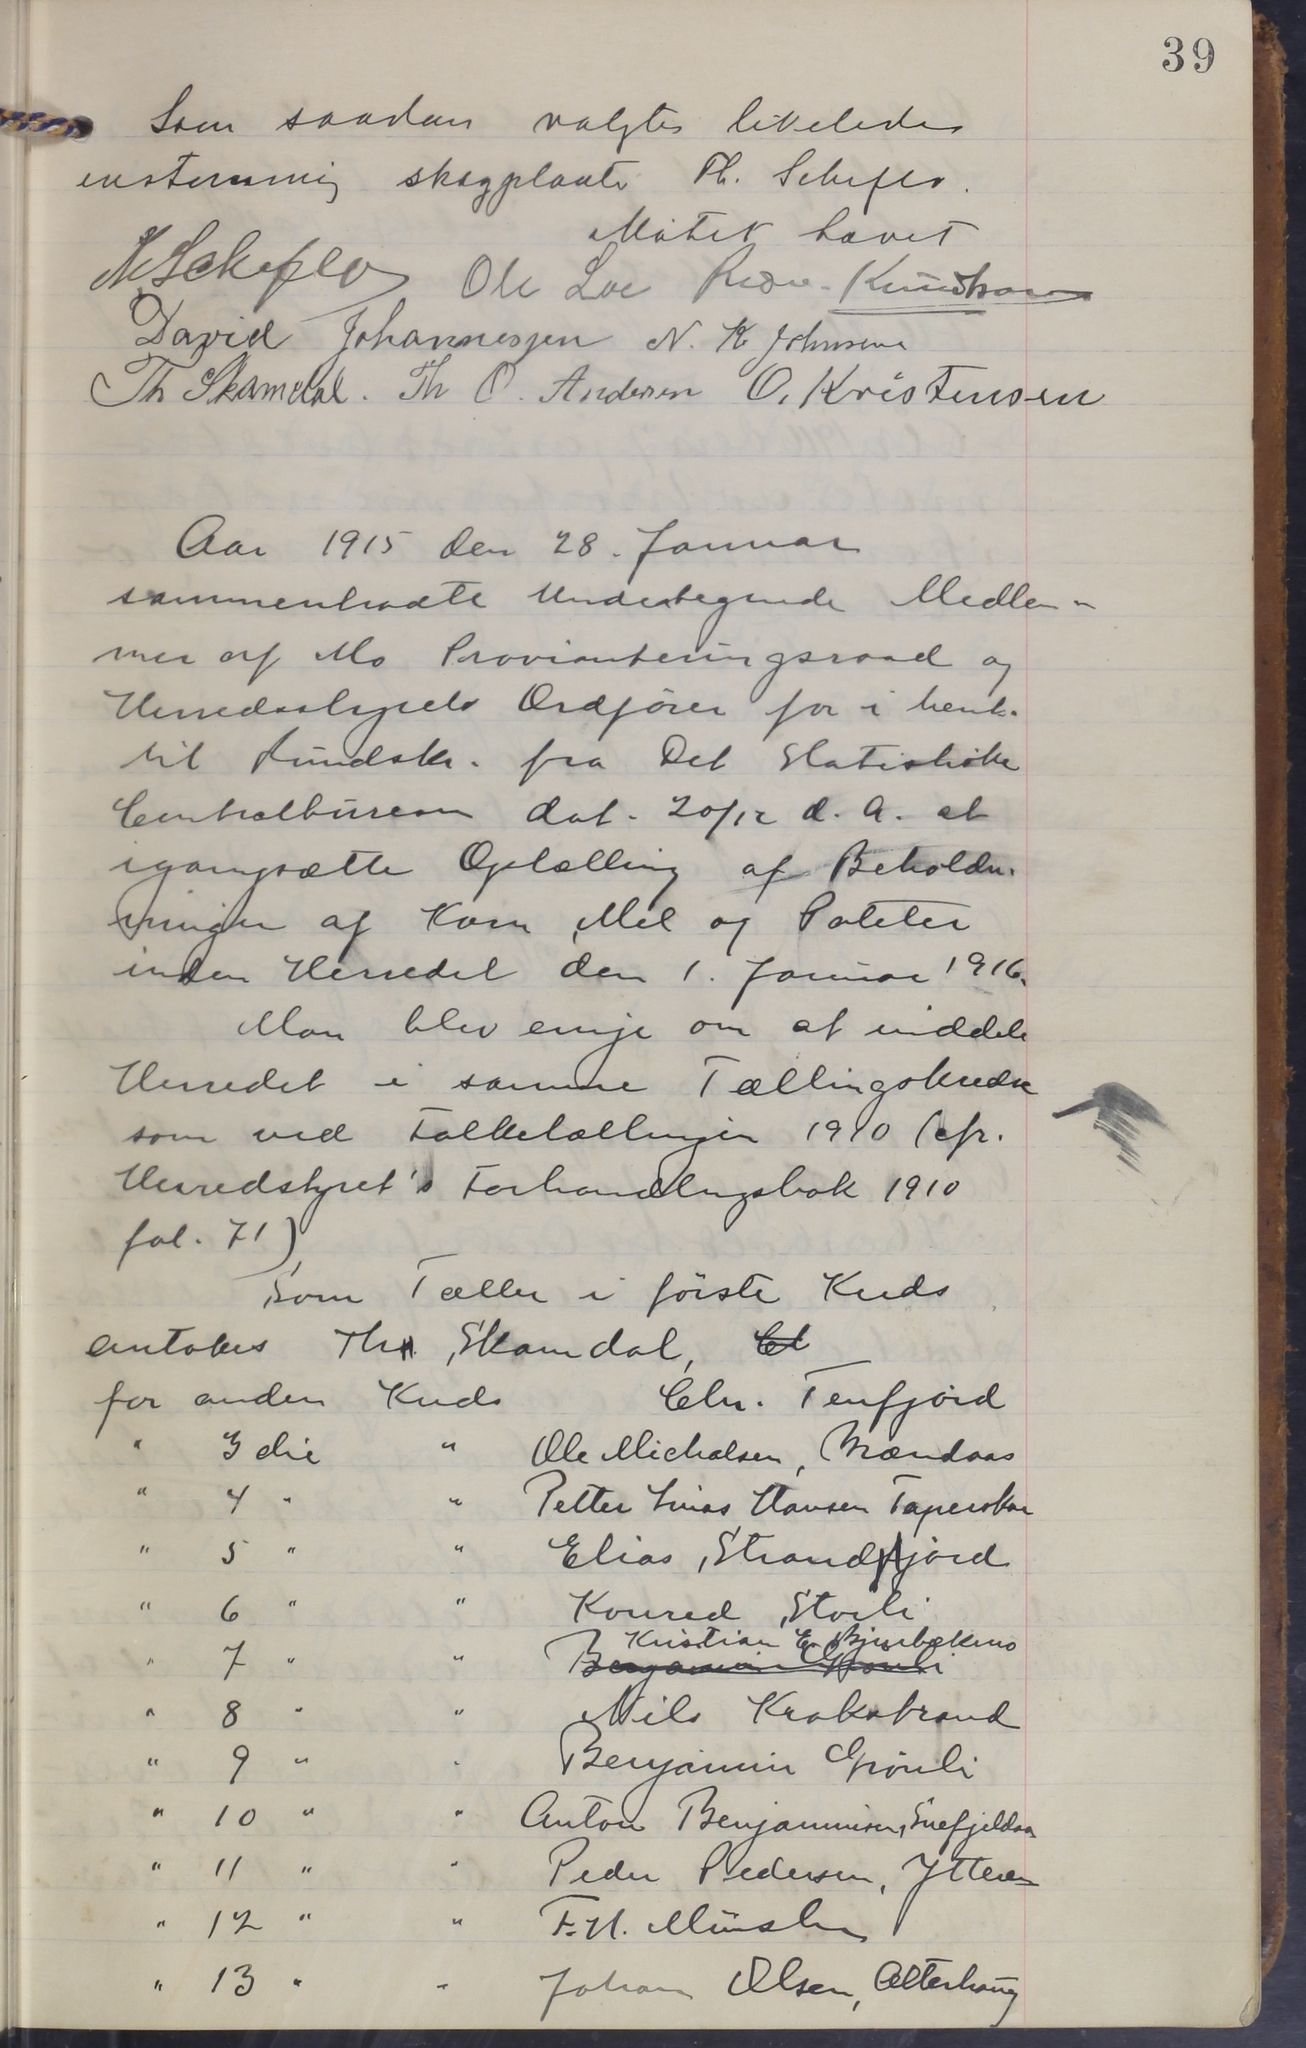 39
Som saadan valgtes likeledes
enstemmig skogplante Th. Scheflo.
Møtet hævet
Scheflo Ole Loe Peder Knudsen
David Johannessen N. K Johnsen
Th Skamdal. Th O. Andersen O. Kristensen
Aar 1915 den 28. Januar
sammentraadte undertegnede Medlem-
mer af Mo Provianteringsraad og
Herredsstyrets Ordfører for i henh.
til Rundskr. fra Det Statistiske
Centralbureau dat. 20/12 d. A. at
igangsætte Optælling af Beholdn.
ninger af Korn, Mel og Poteter
inden Herredet den 1. Januar 1916.
Man blev enige om at inddele
Herredet i samme Tællingskredse
som ved Folketællingen 1910 (cfr.
Herredstyret's Forhandlingsbok 1910
fol. 71)
Som Tæller i første Kreds
antokes Th. Skamdal,
for anden Kreds Chr. Tenfjord
" 3die " Ole Michalsen, Brændaas
" 4 " " Petter Linas Hansen Taperskar
" 5 " " Elias Strandfjord
" 6 " " Konrad Storli
" 7 " " Kristian E. Bjurbækmo
Benjamin Grønli
" 8 " " Nils Krokstrand
" 9 " " Benjamin Grønli
" 10 " " Anton Benjaminsen, Snefjeldaa
" 11 " " Peder Pedersen, Ytteren
" 12 " " F. H. Münster
" 13 " " Johan Olsen, Alterhaug